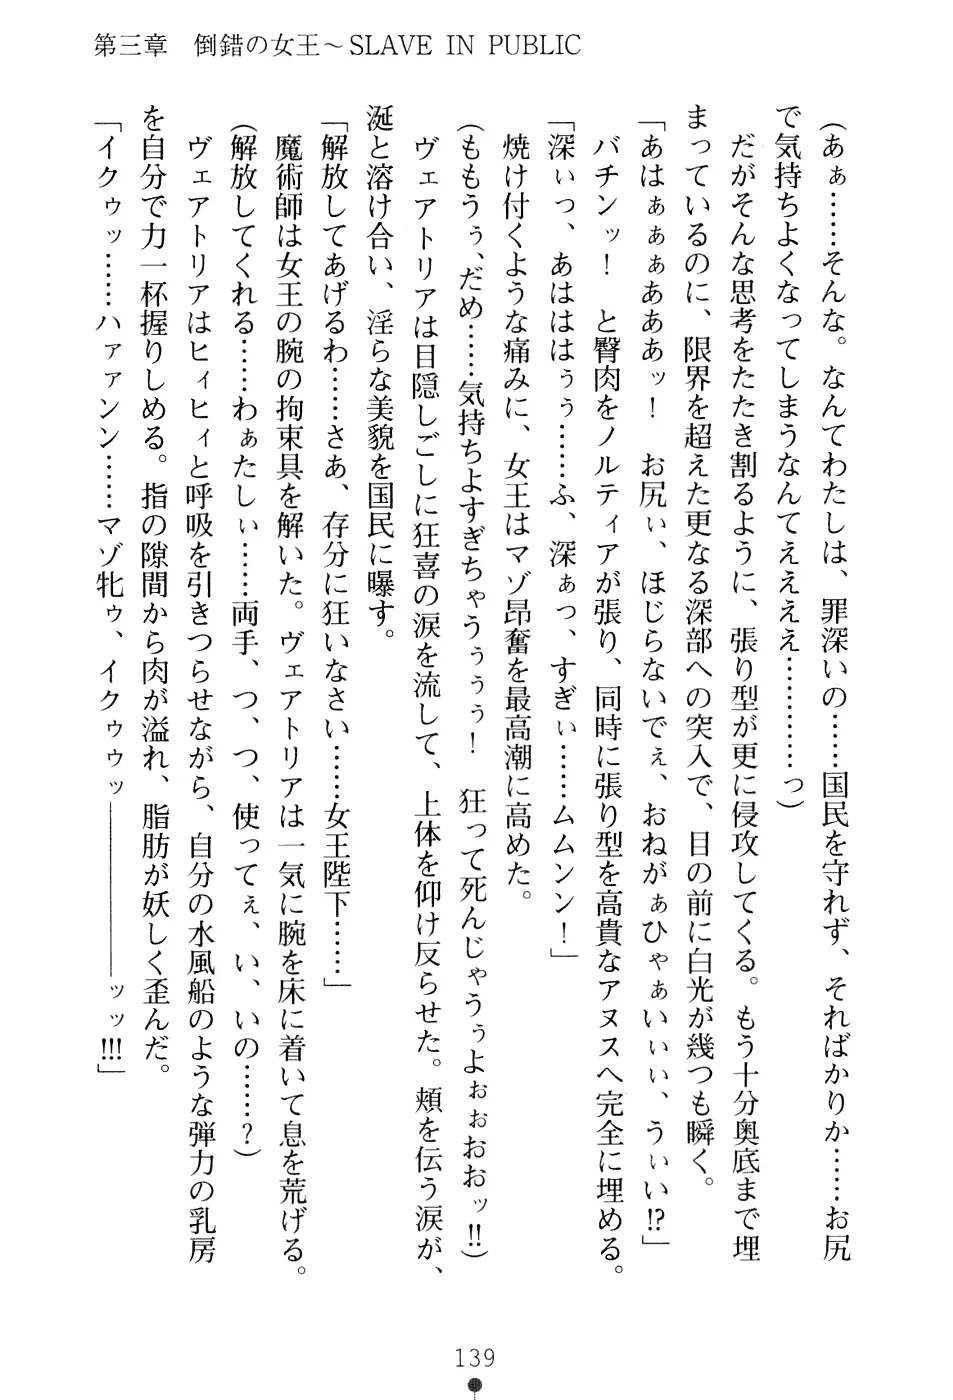 第三章　倒錯の女王～SLAVE IN PUBLIC
（あぁ……そんな。なんてわたしは、罪深いの……国民を守れず、そればかりか……お尻
で気持ちよくなってしまうなんてえええ…………っ）
だがそんな思考をたたき割るように、張り型が更に侵攻してくる。もう十分奥底まで埋
まっているのに、限界を超えた更なる深部への突入で、目の前に白光が幾つも瞬く。
「あはぁぁぁあああッ！　お尻ぃ、ほじらないでぇ、おねがぁひゃぁいぃぃ、うぃい!?」
バチンッ！　と臀肉をノルティアが張り、同時に張り型を高貴なアヌスへ完全に埋める。
「深ぃっ、あはははぅぅ……ふ、深ぁっ、すぎぃ……ムムンン！」
焼け付くような痛みに、女王はマゾ昂奮を最高潮に高めた。
（ももうぅ、だめ……気持ちよすぎちゃうぅぅぅ！　狂って死んじゃうぅよぉぉおおッ!!）
ヴェアトリアは目隠しごしに狂喜の涙を流して、上体を仰け反らせた。頬を伝う涙が、
涎と溶け合い、淫らな美貌を国民に曝す。
「解放してあげるわ……さあ、存分に狂いなさい……女王陛下……」
魔術師は女王の腕の拘束具を解いた。ヴェアトリアは一気に腕を床に着いて息を荒げる。
（解放してくれる……わぁたしぃ……両手、つ、つ、使ってぇ、い、いの……？）
ヴェアトリアはヒィヒィと呼吸を引きつらせながら、自分の水風船のような弾力の乳房
を自分で力一杯握りしめる。指の隙間から肉が溢れ、脂肪が妖しく歪んだ。
「イクゥッ……ハァァン……マゾ牝ゥ、イクゥゥッ――――――ッッ!!!」
139